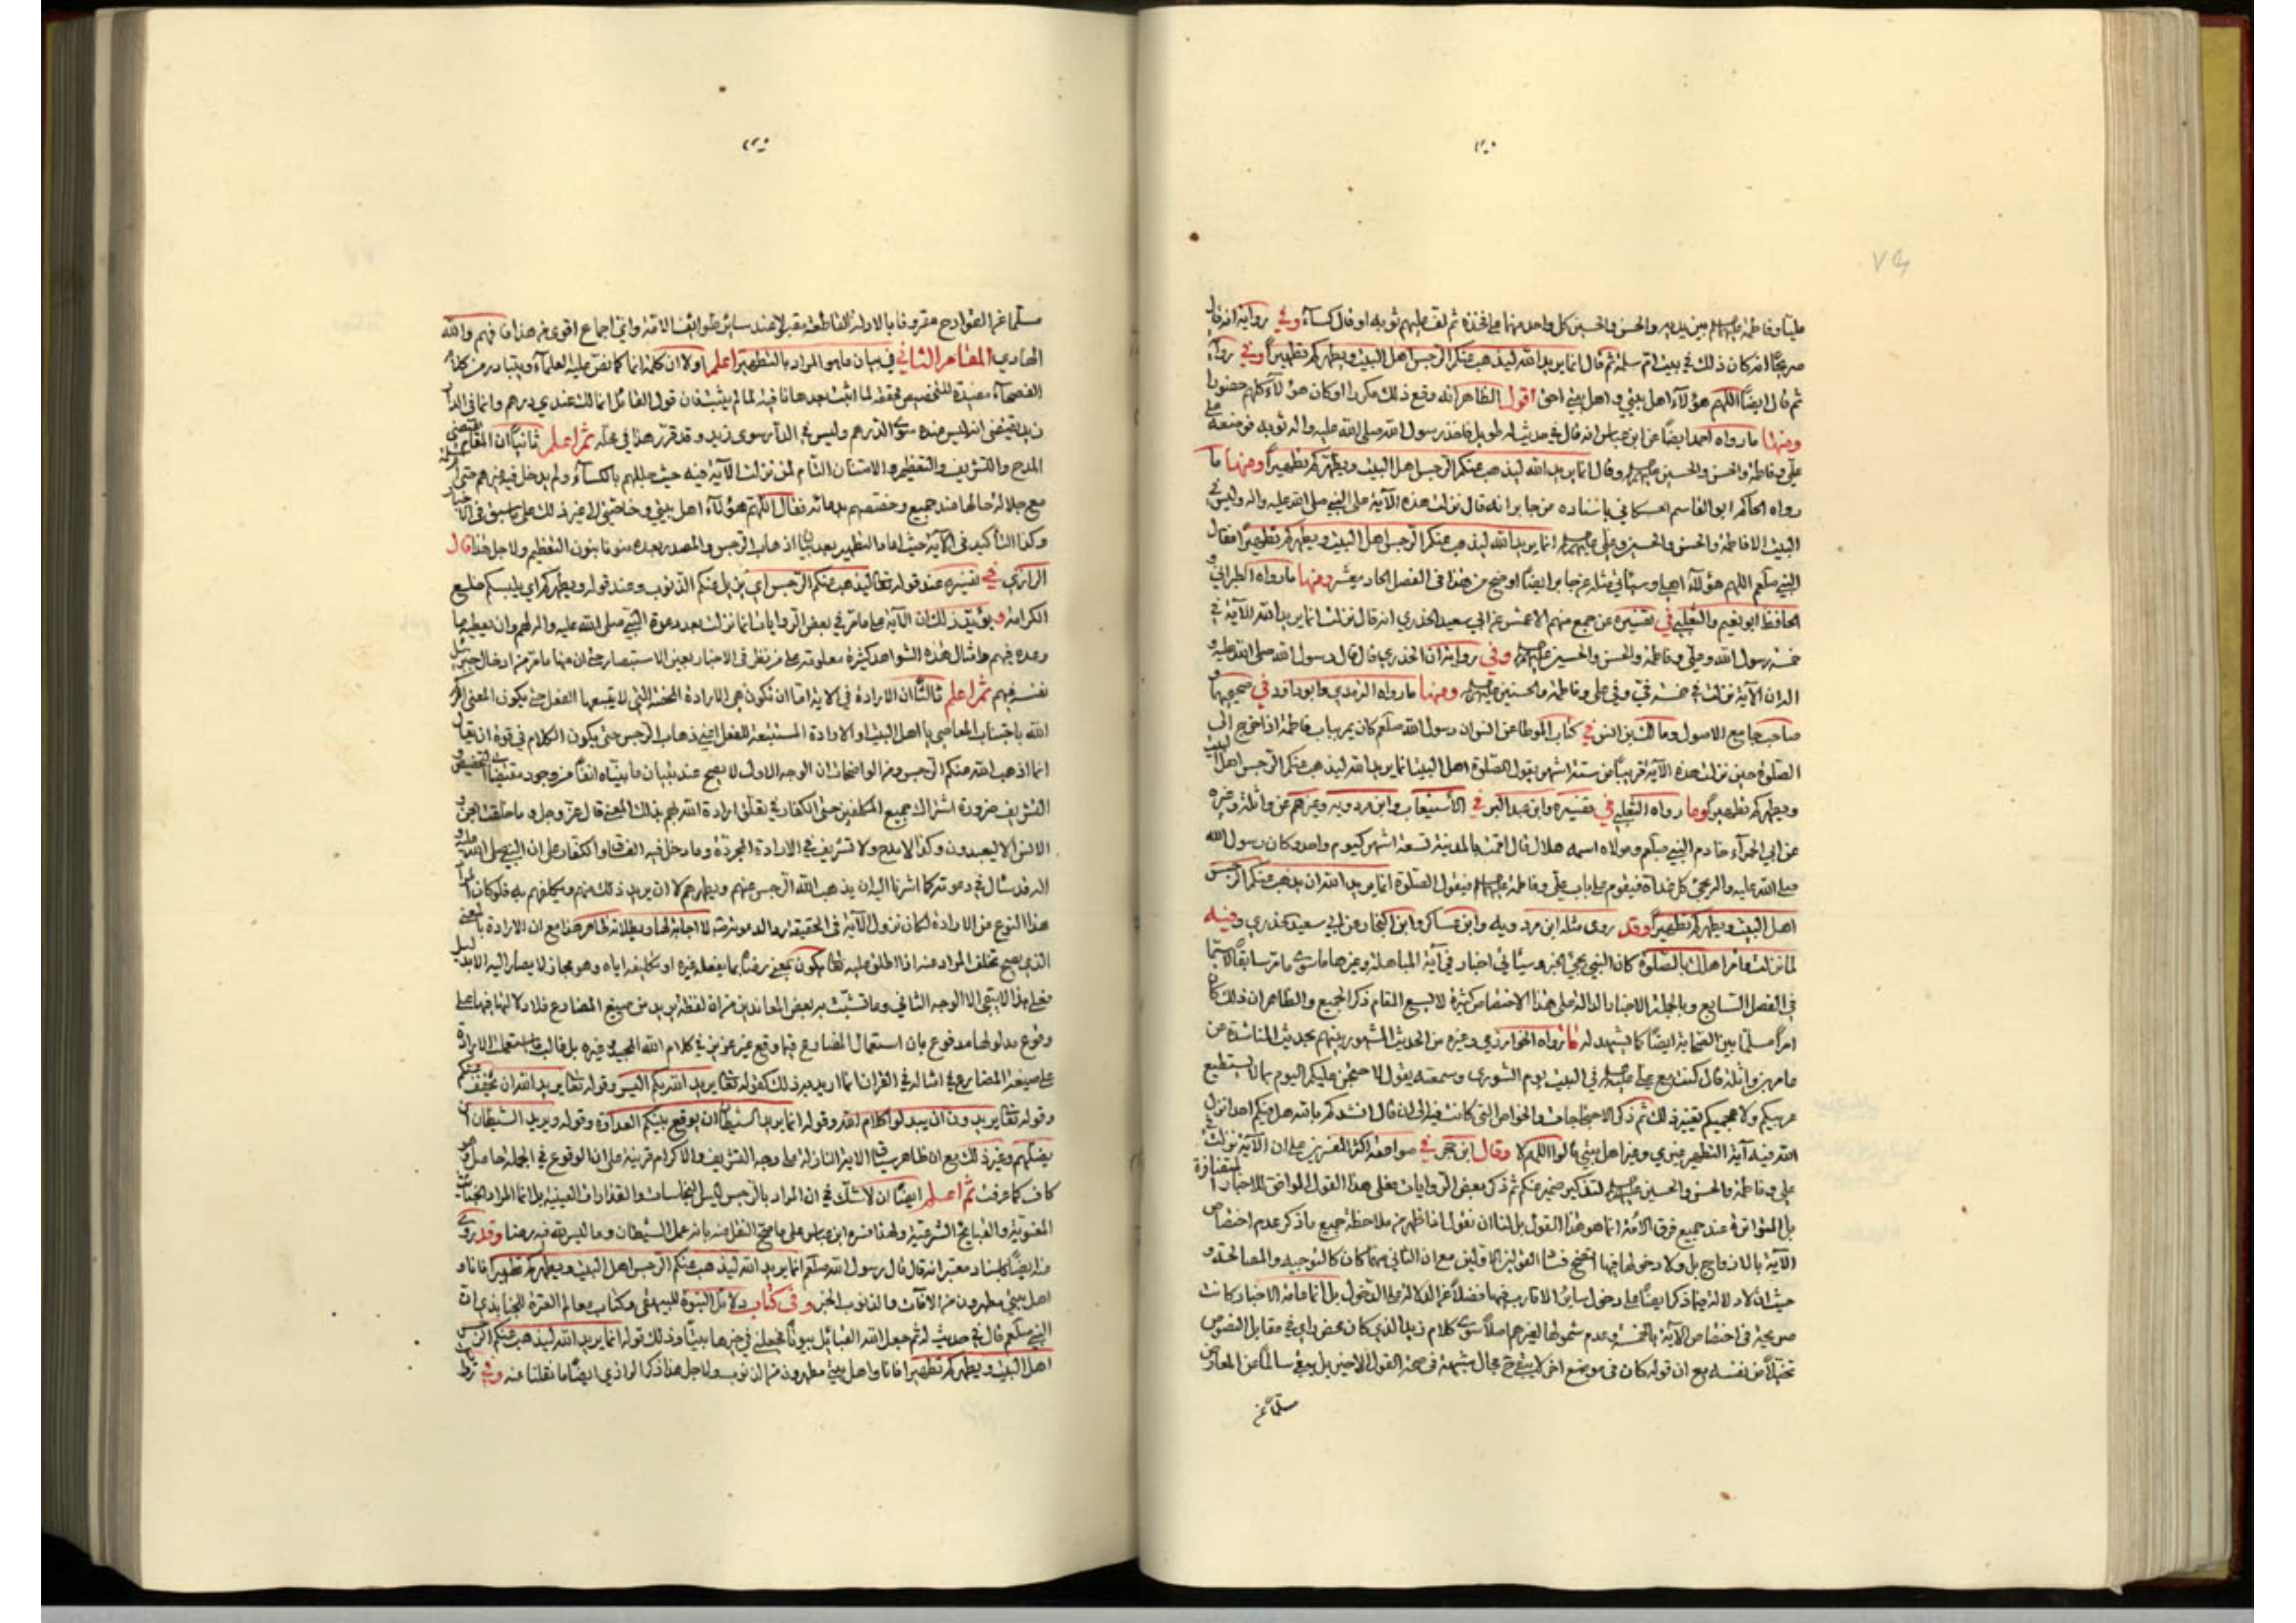 عليا وفاطمة عليهم بين يديه والحسن والحسين كل واحد منهما على فخذه ثم لف عليهم ثوبه او قال كساء وفي رواية انه قال
صريحا انه كان ذلك في بيت ام سلمة ثم قال انما يريد الله ليذهب عنكم الرجس اهل البيت ويطهركم تطهيرا وفي رواية
ثم قال ايضا اللهم هؤلاء اهل بيتي واهل بيتي احق اقول الظاهر انه وقع ذلك مكررا او كان هؤلاء كلهم حضورا
ومنها ما رواه احمد ايضا عن ابن عباس انه قال في حديث له طويل فاخذ رسول الله صلى الله عليه واله ثوبه فوضعه على
علي وفاطمة والحسن والحسين وقال انما يريد الله ليذهب عنكم الرجس اهل البيت ويطهركم تطهيرا ومنها ما
رواه الحاكم ابو القاسم الحسكاني باسناده من جابر انه قال نزلت هذه الآية على النبي صلى الله عليه واله وليس في
البيت الا فاطمة والحسن والحسين وعلي انما يريد الله ليذهب عنكم الرجس اهل البيت ويطهركم تطهيرا فقال
النبي صلعم اللهم هؤلاء اهلي وسيأتي مثله عن جابر ايضا اوضح من هذا في الفصل الحادي عشر ومنها ما رواه الطبراني و
الحافظ ابو نعيم والثعلبي في تفسيره عن جمع منهم الاعمش عن ابي سعيد الخدري انه قال نزلت انما يريد الله الآية في
خمسة رسول الله وعلي وفاطمة والحسن والحسين وفي رواية ان الخدري قال قال رسول الله صلى الله عليه و
اله ان الآية نزلت في خمسة في وفي علي وفاطمة والحسنين ومنها ما رواه الترمذي وابو داود في صحيحهما و
صاحب جامع الاصول ومالك بن انس في كتاب الموطا عن انس ان رسول الله صلعم كان يمر بباب فاطمة اذا خرج الى
الصلوة حين نزلت هذه الآية قريبا من ستة اشهر يقول الصلوة اهل البيت انما يريد الله ليذهب عنكم الرجس اهل البيت
ويطهركم تطهيرا وما رواه الثعلبي في تفسيره وابن عبد البر في الاستيعاب وابن مردويه وغيرهم عن واثلة وغيره
عن ابي الحمراء خادم النبي صلعم ومولاه اسمه هلال قال اقمت بالمدينة تسعة اشهر كيوم واحد وكان رسول الله
صلى الله عليه واله يجئ كل غداة فيقوم على باب علي وفاطمة فيقول الصلوة انما يريد الله ان يذهب عنكم الرجس
اهل البيت ويطهركم تطهيرا وقد روى مثله ابن مردويه وابن عساكر وابن النجار عن ابي سعيد الخدري وفيه
لما نزلت وأمر اهلك بالصلوة كان النبي يجئ الخبر وسيأتي اخبار في آية المباهلة وغيرها ما سوى ما مر سابقا لاسيما
في الفصل السابع وبالجملة الاخبار الدالة على هذا الاختصاص كثيرة لا يسع المقام ذكر الجميع والظاهر ان ذلك كان
امرا مسلما بين الصحابة ايضا كما يشهد له ما رواه الخوارزمي وغيره من الحديث المشهور بينهم بحديث المناشدة عن
عامر بن واثلة قال كنت مع علي في البيت يوم الشورى وسمعته يقول لاحتجن عليكم اليوم بما لا يستطيع
عربيكم ولا عجميكم تغيير ذلك ثم ذكر الاحتجاجات والخواص التي كانت فيه الى ان قال انشدكم بالله هل منكم احد انزل
الله فيه آية التطهير غيري وغير اهل بيتي قالوا اللهم لا وقال ابن حجر في صواعقه اكثر المفسرين على ان الآية نزلت في
علي وفاطمة والحسن والحسين لتذكير ضمير عنكم ثم ذكر بعض الروايات فعلى هذا القول الموافق للاخبار المستفيضة
بل المتواترة عند جميع فرق الامة انما هو هذا القول بل لنا ان نقول اذا ظهر من ملاحظة جميع ما ذكر عدم اختصاص
الآية بالازواج بل ولا دخولها فيها اتضح فساد القولين الاولين مع ان الثاني مهما كان كالتوجيه والمصالحة و
حيث ان لا دلالة فيما ذكر ايضا على دخول ساير الاقارب فيها فضلا عن الدلالة على الدخول بل انما عامة الاخبار كانت
صريحة في اختصاص الآية بالخمسة وعدم شمولها لغيرهم اصلا سوى كلام زيد الذي كان محض رأي في مقابل النصوص
تخيلا من نفسه مع ان قوله كان في موضع اخر لا يبقى ح مجال شبهة في صحة القول الاخير بل يبقى سالما عن المعارض
مسلما عن
مسلما عن القوادح مقرونا بالادلة القاطعة مقبولا عند ساير طوايف الامة واي اجماع اقوى من هذا فافهم والله
الهادي المقام الثاني في بيان ما هو المراد بالتطهير اعلم اولا ان كلمة انما كما نص عليه العلماء ويتبادر من كلام
الفصحاء مفيدة للتخصيص محققة لما اثبت بعدها نافية لما لم يثبت فان قول القائل انما لك عندي درهم وانما في الدار
زيد يقتضي انه ليس عنده سوى الدرهم وليس في الدار سوى زيد وقد قرر هذا في محله ثم اعلم ثانيا ان المقام يقتضي
المدح والتشريف والتعظيم والامتنان التام لمن نزلت الآية فيه حيث جللهم بالكساء ولم يدخل فيه غيرهم حتى
مع جلالة حالها عند الجميع وخصهم بدعائه فقال اللهم هؤلاء اهل بيتي وخاصتي الى غير ذلك على ما سبق في الاخبار
وكذا التأكيد في الآية حيث اعاد التطهير بعد بيان اذهاب الرجس والمصدر بعده منونا بنون التعظيم ولاجل هذا قال
الرازي في تفسيره عند قوله تعالى ليذهب عنكم الرجس اي يزيل عنكم الذنوب وعند قوله ويطهركم اي يلبسكم خلع
الكرامة ويؤيد ذلك ان الآية على ما مر في بعض الروايات انما نزلت بعد دعوة النبي صلى الله عليه واله لهم وان يعطيه ما
وعده فيهم وامثال هذه الشواهد كثيرة معلومة على من نظر في الاخبار بعين الاستبصار حتى ان منها ما مر من ادخال جبرئيل
نفسه فيهم ثم اعلم ثالثا ان الارادة في الآية اما ان تكون هي الارادة المحضة التي لا يتبعها الفعل حتى يكون المعنى امركم
الله باجتناب المعاصي يا اهل البيت او الارادة المستتبعة للفعل اعني ذهاب الرجس حتى يكون الكلام في قوة ان يقال
انما اذهب الله عنكم الرجس ومن الواضحات ان الوجه الاول لا يصح عند تبيان ما بيناه انفا من وجود مقتضيات التخصيص و
التشريف ضرورة اشتراك جميع المكلفين حتى الكفار في تعلق ارادة الله لهم بذلك المعنى قال عز وجل وما خلقت الجن و
الانس الا ليعبدون وكذا لا مدح ولا تشريف في الارادة المجردة وما دخل فيه الفساق والكفار على ان النبي صلى الله عليه و
اله قد سأل في دعوته كما اشرنا اليه ان يذهب الله الرجس عنهم ويطهرهم لا ان يريد ذلك منهم ويكلفهم به فلو كان المراد
هذا النوع من الارادة لكان نزول الآية في الحقيقة ردا لدعوته لا اجابة لها وبطلانه ظاهر هذا مع ان الارادة بالمعنى
الذي يصح تخلف المراد عنه اذا اطلق عليه تعالى يكون بمعنى رضاه بما يفعله غيره او تكليفه اياه وهو مجاز لا يصار اليه الا بدليل
فعلى هذا لا يبقى الا الوجه الثاني وما تشبث به بعض المعاندين من ان لفظة يريد من صيغ المضارع فلا دلالة فيها على
وقوع مدلولها مدفوع بان استعمال المضارع فيما وقع غير عزيز في كلام الله المجيد وغيره بل غالب ما استعملت الارادة
على صيغة المضارع في امثاله في القرآن انما اريد به ذلك كقوله تعالى يريد الله بكم اليسر وقوله تعالى يريد الله ان يخفف عنكم
وقوله تعالى يريدون ان يبدلوا كلام الله وقوله انما يريد الشيطان ان يوقع بينكم العداوة وقوله ويريد الشيطان ان
يضلهم وغير ذلك مع ان ظاهر سياق الآية النازلة على وجه التشريف والاكرام قرينة على ان الوقوع في الجملة حاصل و
كاف كما عرفت ثم اعلم ايضا ان لا شك في ان المراد بالرجس ليس النجاسات والقذارات العينية بل انما المراد الخبائث
المعنوية والقبايح الشرعية ولهذا فسره ابن عباس على ما صح النقل عنه بانه عمل الشيطان وما ليس لله فيه رضا وقد روي
عنه ايضا باسناد معتبر انه قال قال رسول الله صلعم انما يريد الله ليذهب عنكم الرجس اهل البيت ويطهركم تطهيرا فانا و
اهل بيتي مطهرون من الآفات والذنوب الخبر وفي كتاب دلائل النبوة للبيهقي وكتاب معالم العترة للجنابذي ان
النبي صلعم قال في حديث له ثم جعل الله القبائل بيوتا فجعلني في خيرها بيتا وذلك قوله انما يريد الله ليذهب عنكم الرجس
اهل البيت ويطهركم تطهيرا فانا واهل بيتي مطهرون من الذنوب ولاجل هذا ذكر الرازي ايضا ما نقلنا عنه وفي